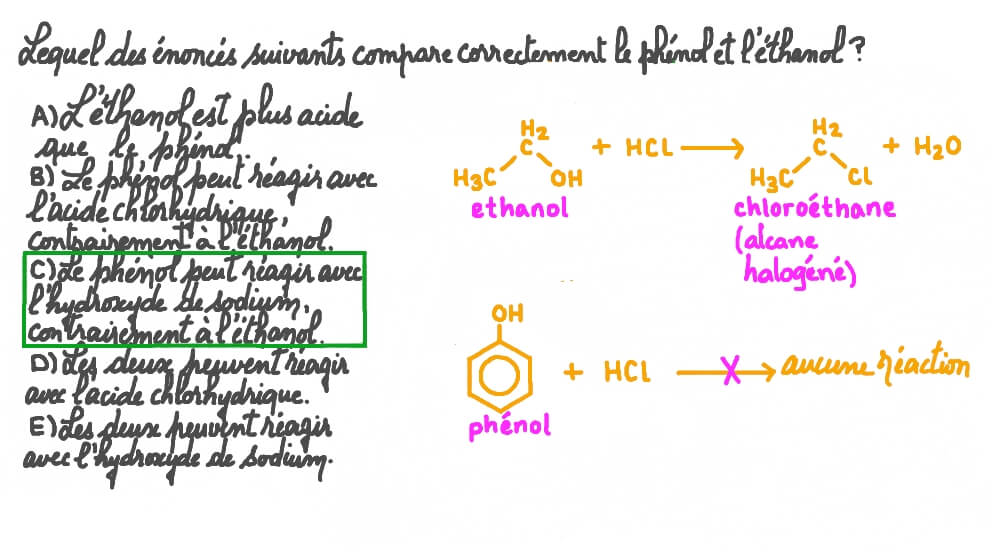 Lequel des énoncés suivants compare correctement le phénol et l'éthanol ?
A) L'éthanol est plus acide
que le phénol.
B) Le phénol peut réagir avec
l'acide chlorhydrique,
contrairement à l'éthanol.
C) Le phénol peut réagir avec
l'hydroxyde de sodium,
contrairement à l'éthanol.
D) Les deux peuvent réagir
avec l'acide chlorhydrique.
E) Les deux peuvent réagir
avec l'hydroxyde de sodium.
H2
C
H3C OH
ethanol
+ HCL
H2
C
H3C Cl
+ H2O
chloroéthane
(alcane
halogéné)
OH
+ HCL
X
aucune réaction
phénol